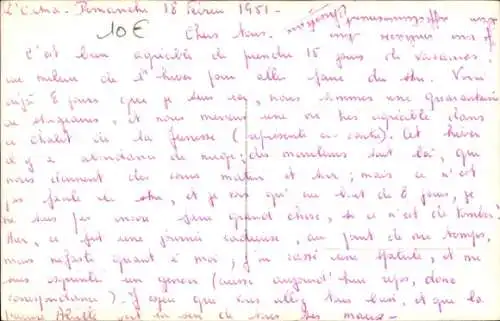 Dimanche 18 Février 1951 -
10€
Chers tous.
C'est bien agréable de prendre 15 jours de vacances,
au milieu de l'hiver pour aller faire du ski. Voici
déjà 8 jours que je suis ici, nous sommes une quarantaine
de stagiaires, et nous menons une vie très agréable dans
ce chalet de la Jeunesse (représenté ci-contre). Cet hiver
il y a abondance de neige; des moniteurs sont là, qui
nous donnent des cours matin et soir; mais ce n'est
pas facile le ski, et je vois qu'au bout de 8 jours, je
ne sais pas encore faire grand chose, si ce n'est de tomber.
Hier, ce fut une journée radieuse, au point de vue temps,
mais néfaste quant à moi; j'ai cassé une spatule, et me
suis un genou (aussi aujourd'hui repos, donc
correspondance). J'espère que vous allez tous bien, et que la